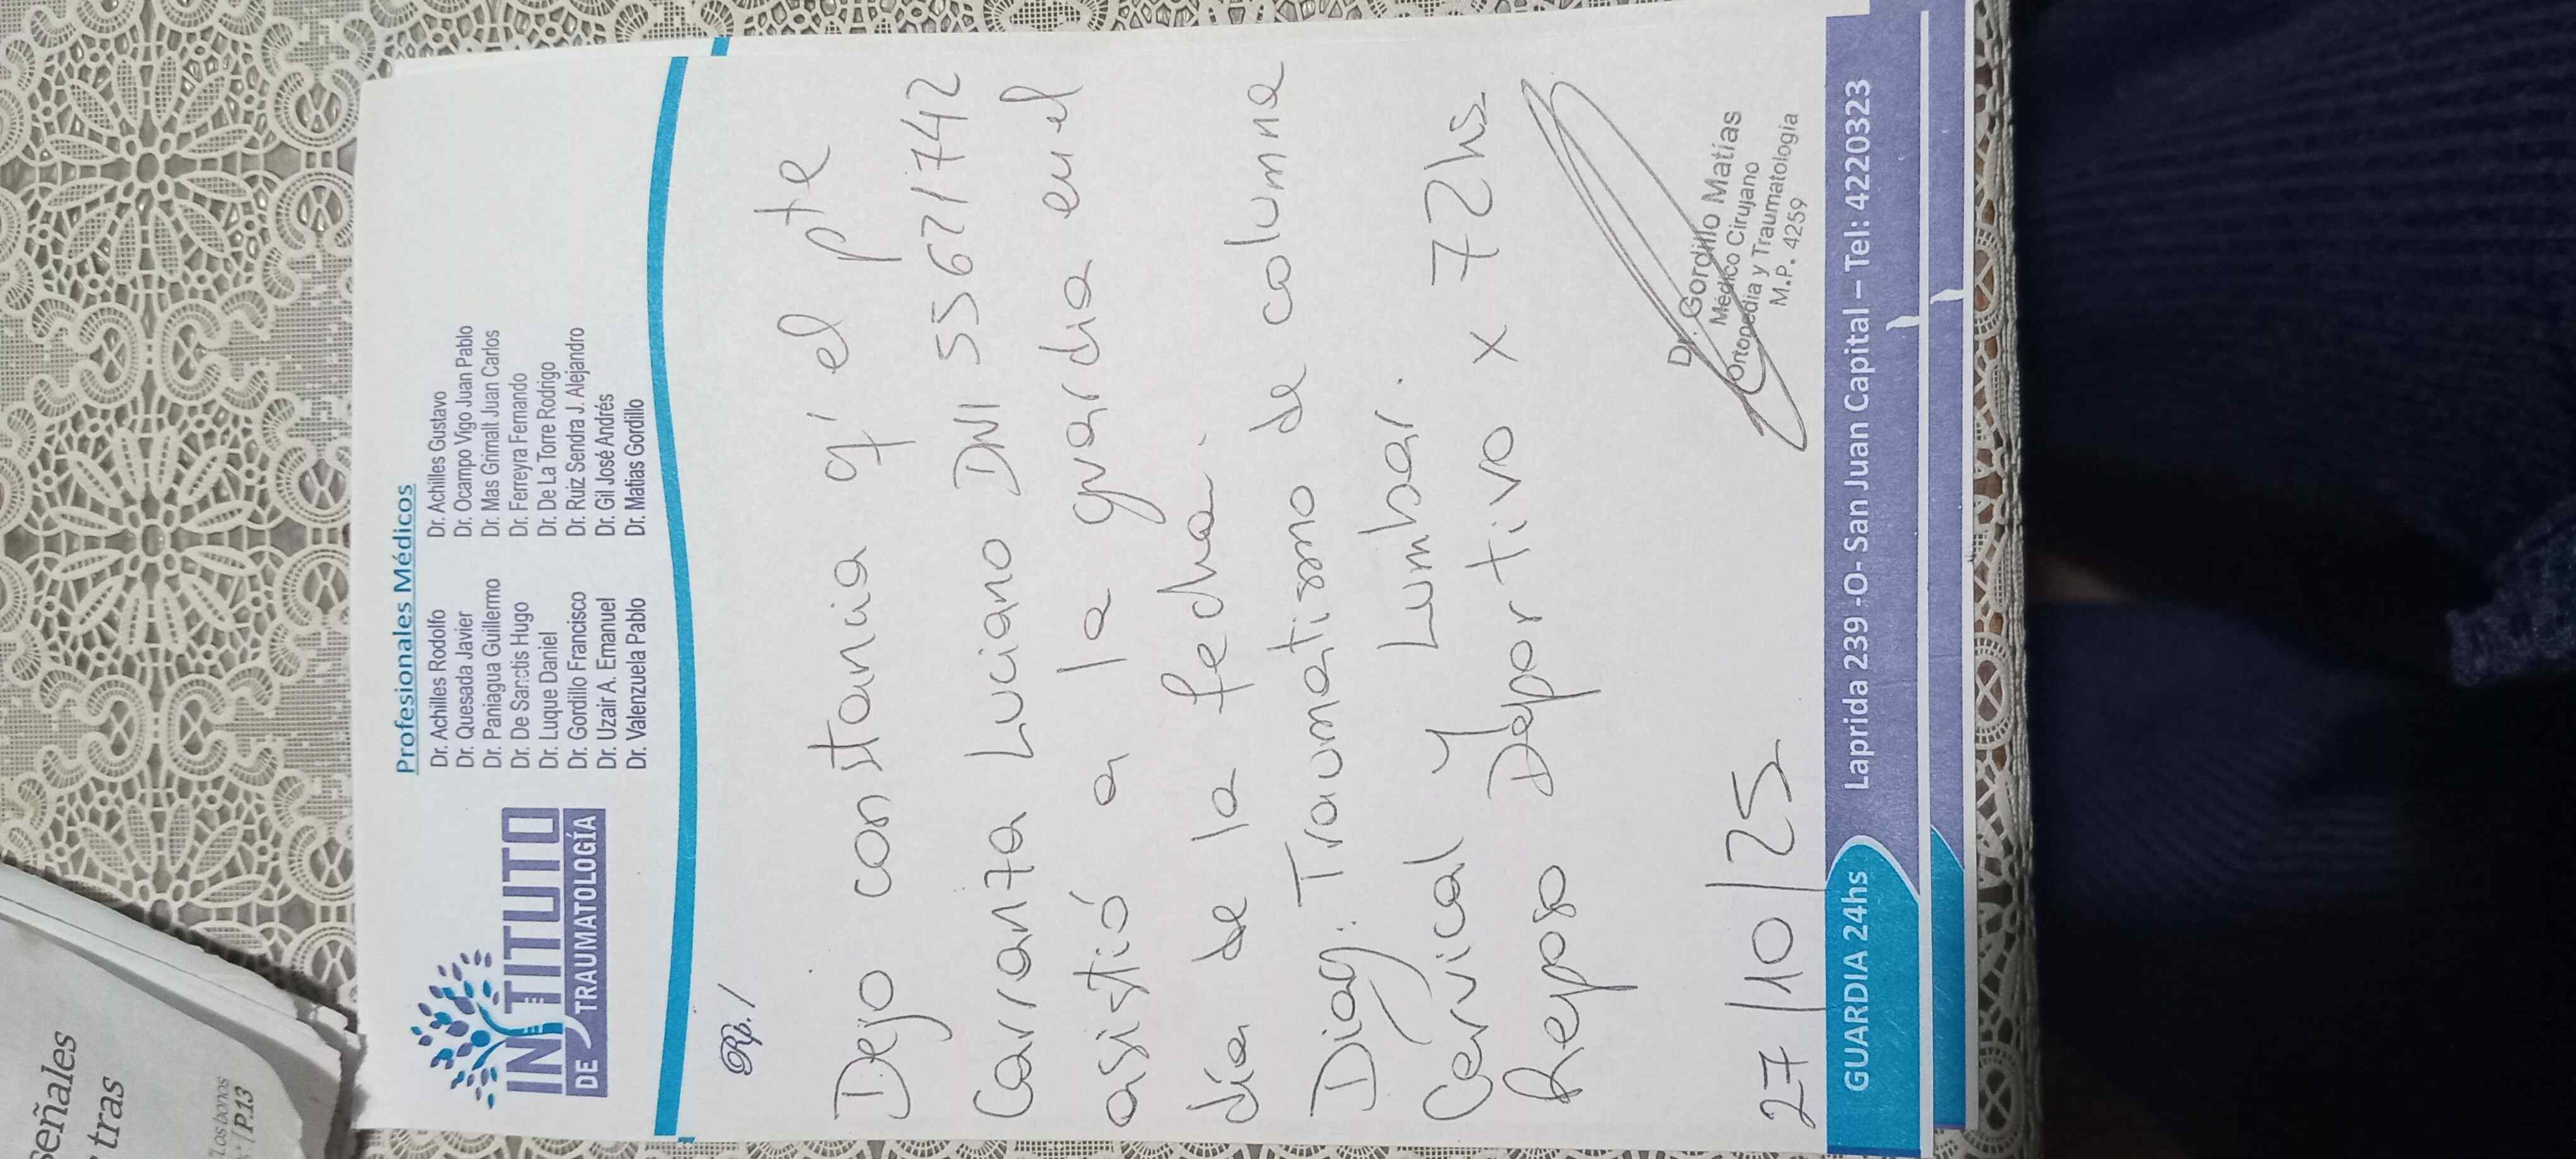 señales
tras
P.13
INSTITUTO
DE TRAUMATOLOGÍA
Profesionales Médicos
Dr. Achilles Rodolfo
Dr. Quesada Javier
Dr. Paniagua Guillermo
Dr. De Sanctis Hugo
Dr. Luque Daniel
Dr. Gordillo Francisco
Dr. Uzair A. Emanuel
Dr. Valenzuela Pablo
Dr. Achilles Gustavo
Dr. Ocampo Vigo Juan Pablo
Dr. Mas Grimalt Juan Carlos
Dr. Ferreyra Fernando
Dr. De La Torre Rodrigo
Dr. Ruiz Sendra J. Alejandro
Dr. Gil José Andrés
Dr. Matias Gordillo
Rp./
Dejo constancia q' el pte
Carranza Luciano DNI 55671742
asistió a la guardia en el
día de la fecha.
Diag: Traumatismo de columna
Cervical y Lumbar.
Reposo Deportivo x 72hs
27/10/25
Dr. Gordillo Matías
Médico Cirujano
Ortopedia y Traumatología
M.P. 4259
GUARDIA 24hs Laprida 239 -O- San Juan Capital – Tel: 4220323